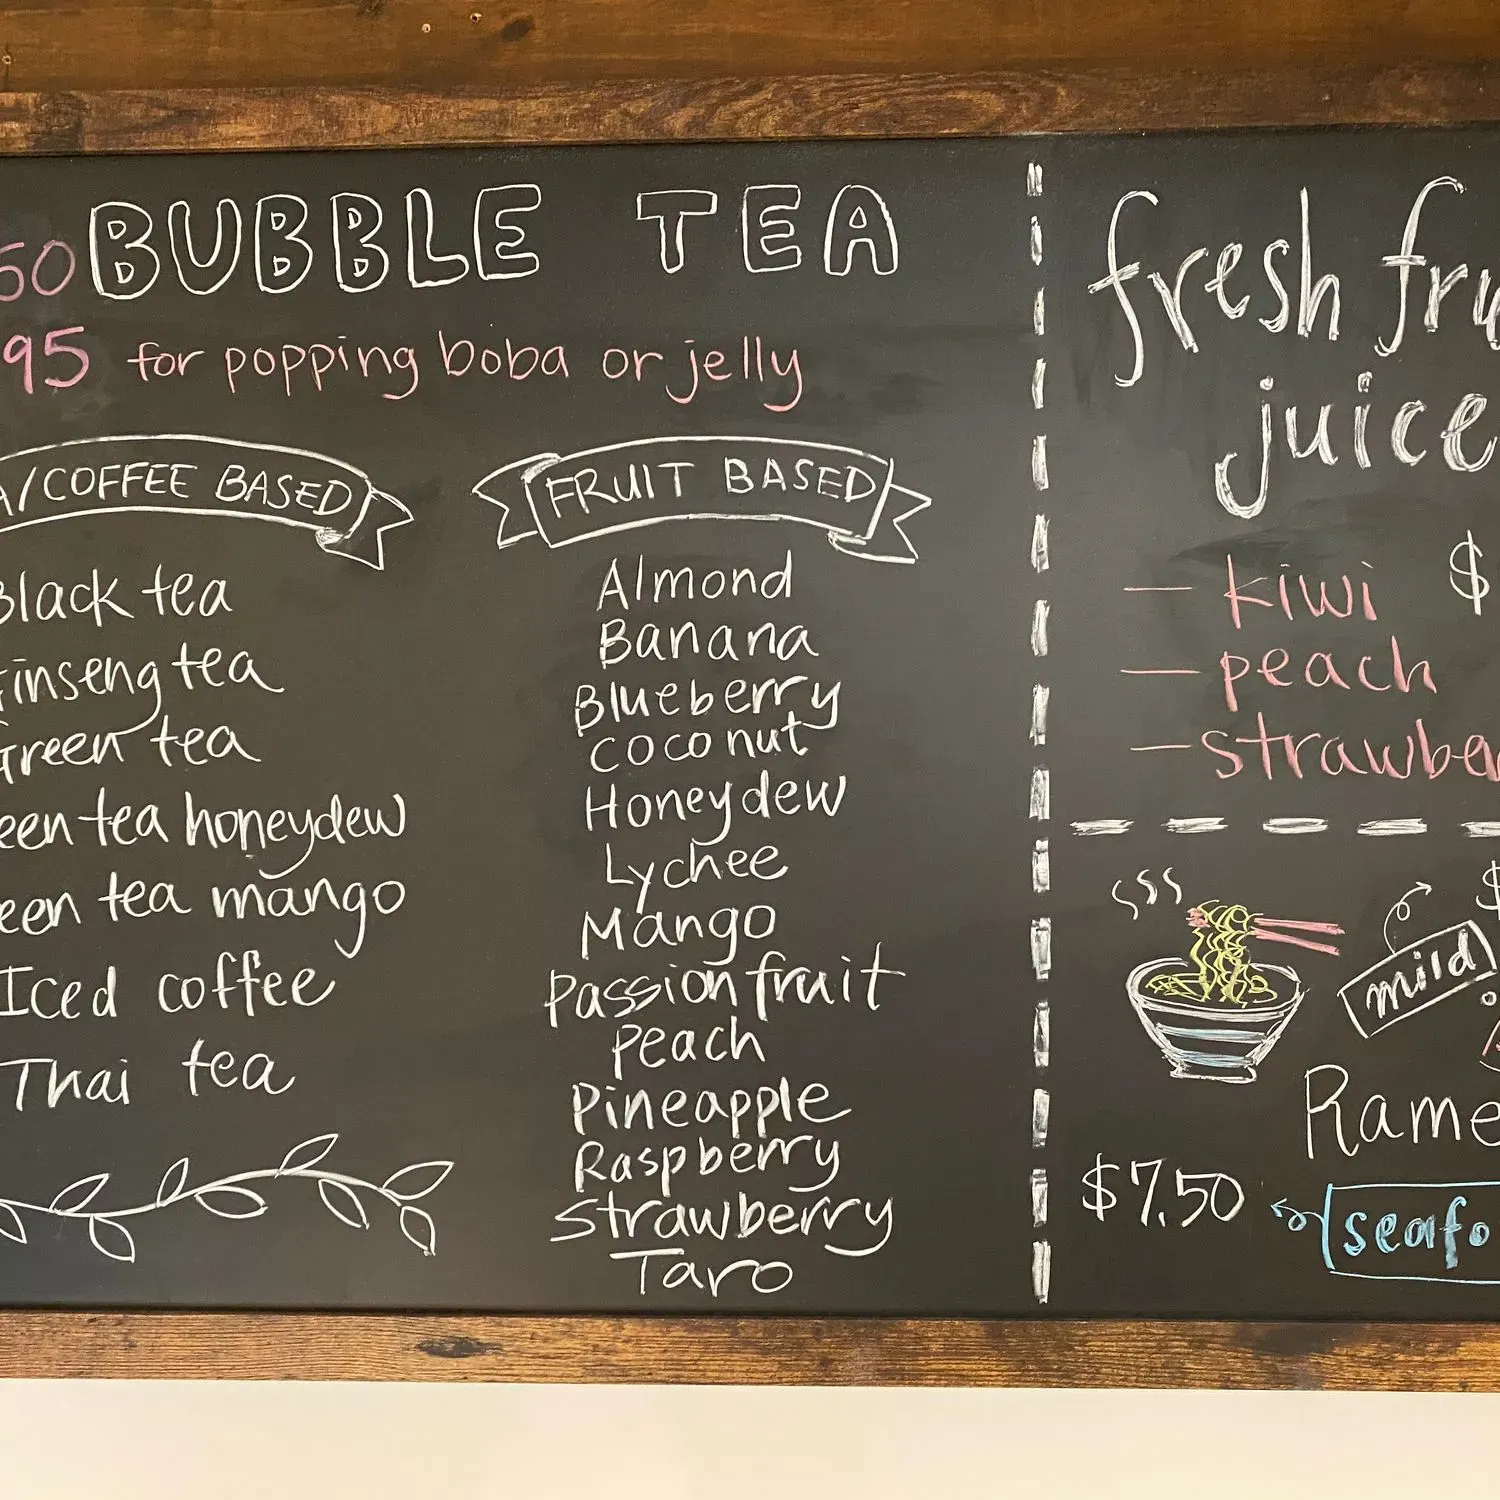 50 BUBBLE TEA
95 for popping boba or jelly
A/COFFEE BASED
Black tea
Ginseng tea
Green tea
een tea honeydew
een tea mango
Iced coffee
Thai tea
FRUIT BASED
Almond
Banana
Blueberry
coconut
Honeydew
Lychee
Mango
Passion fruit
peach
Pineapple
Raspberry
Strawberry
Taro
fresh fru
juice
$
— kiwi
— peach
— strawber
$
mild
Rame
$7.50
seafo